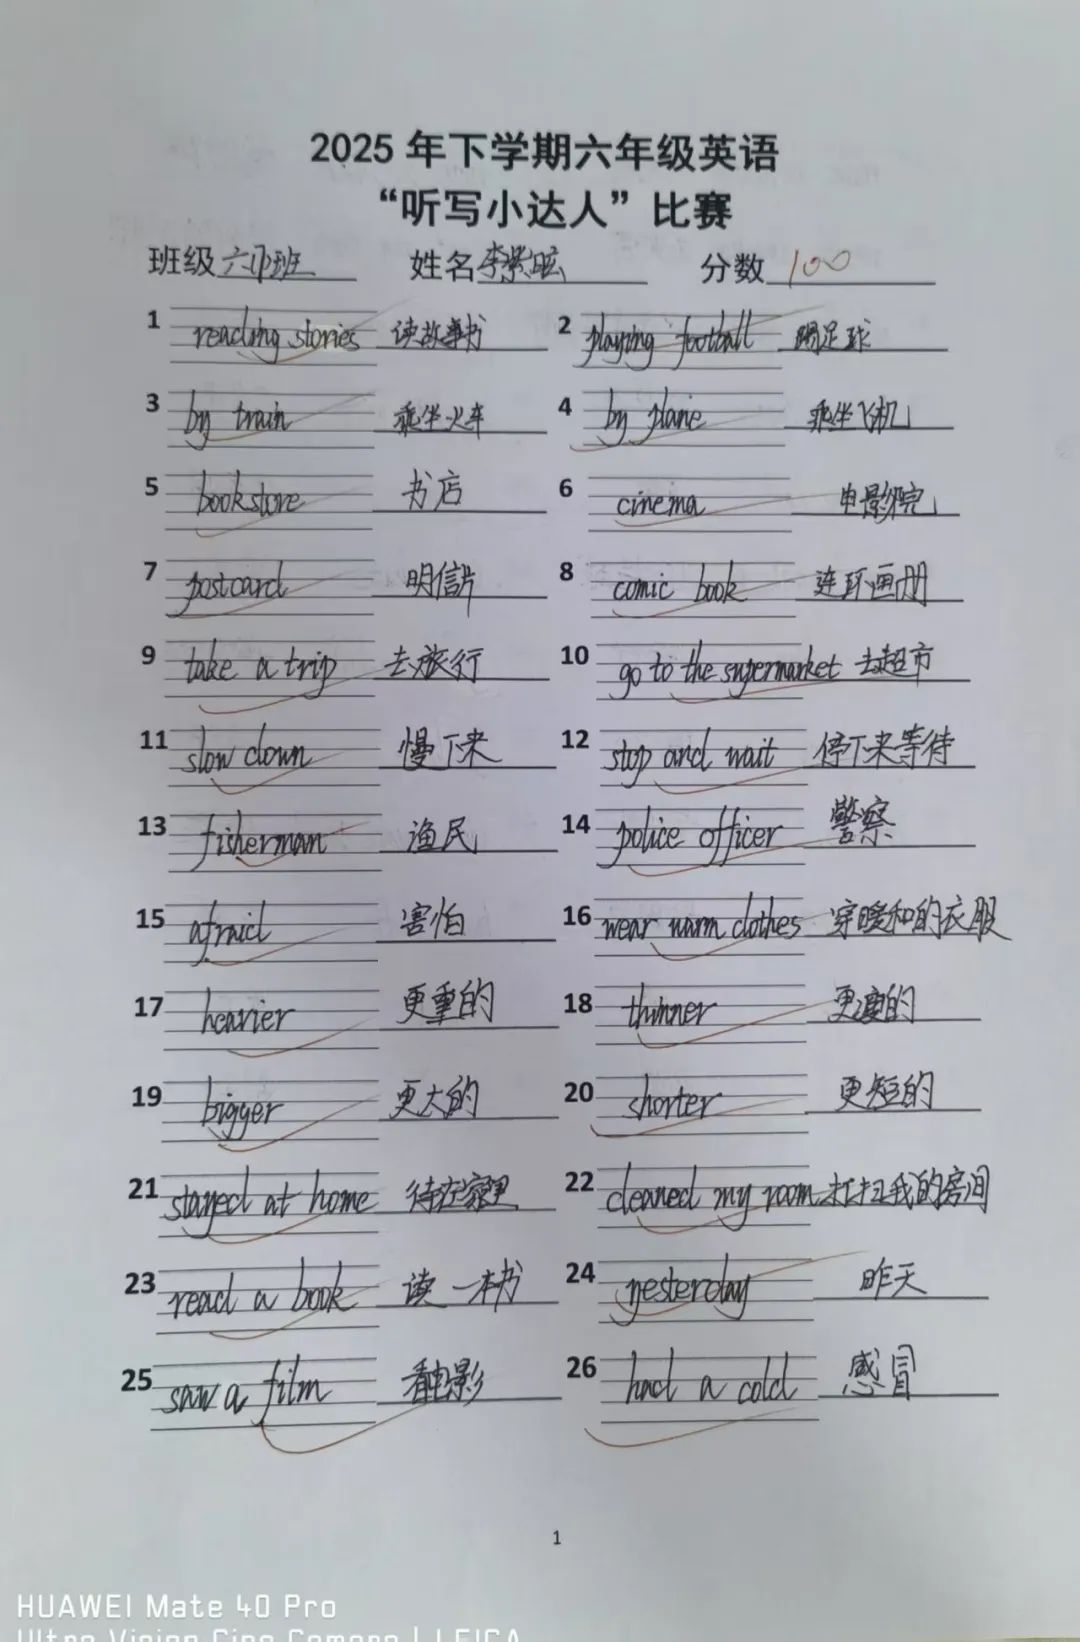 2025 年下学期六年级英语
“听写小达人”比赛
班级 姓名 李 分数 100
1 reading stories 读故事书 2 playing football 踢足球
3 by train 乘坐火车 4 by plane 乘坐飞机
5 bookstore 书店 6 cinema 电影院
7 postcard 明信片 8 comic book 连环画册
9 take a trip 去旅行 10 go to the supermarket 去超市
11 slow down 慢下来 12 stop and wait 停下来等待
13 fisherman 渔民 14 police officer 警察
15 afraid 害怕 16 wear warm clothes 穿暖和的衣服
17 heavier 更重的 18 thinner 更瘦的
19 bigger 更大的 20 shorter 更短的
21 stayed at home 待在家里 22 cleaned my room 打扫我的房间
23 read a book 读一本书 24 yesterday 昨天
25 saw a film 看电影 26 had a cold 感冒
1
HUAWEI Mate 40 Pro
Ultra Vision Cine Camera | LEICA